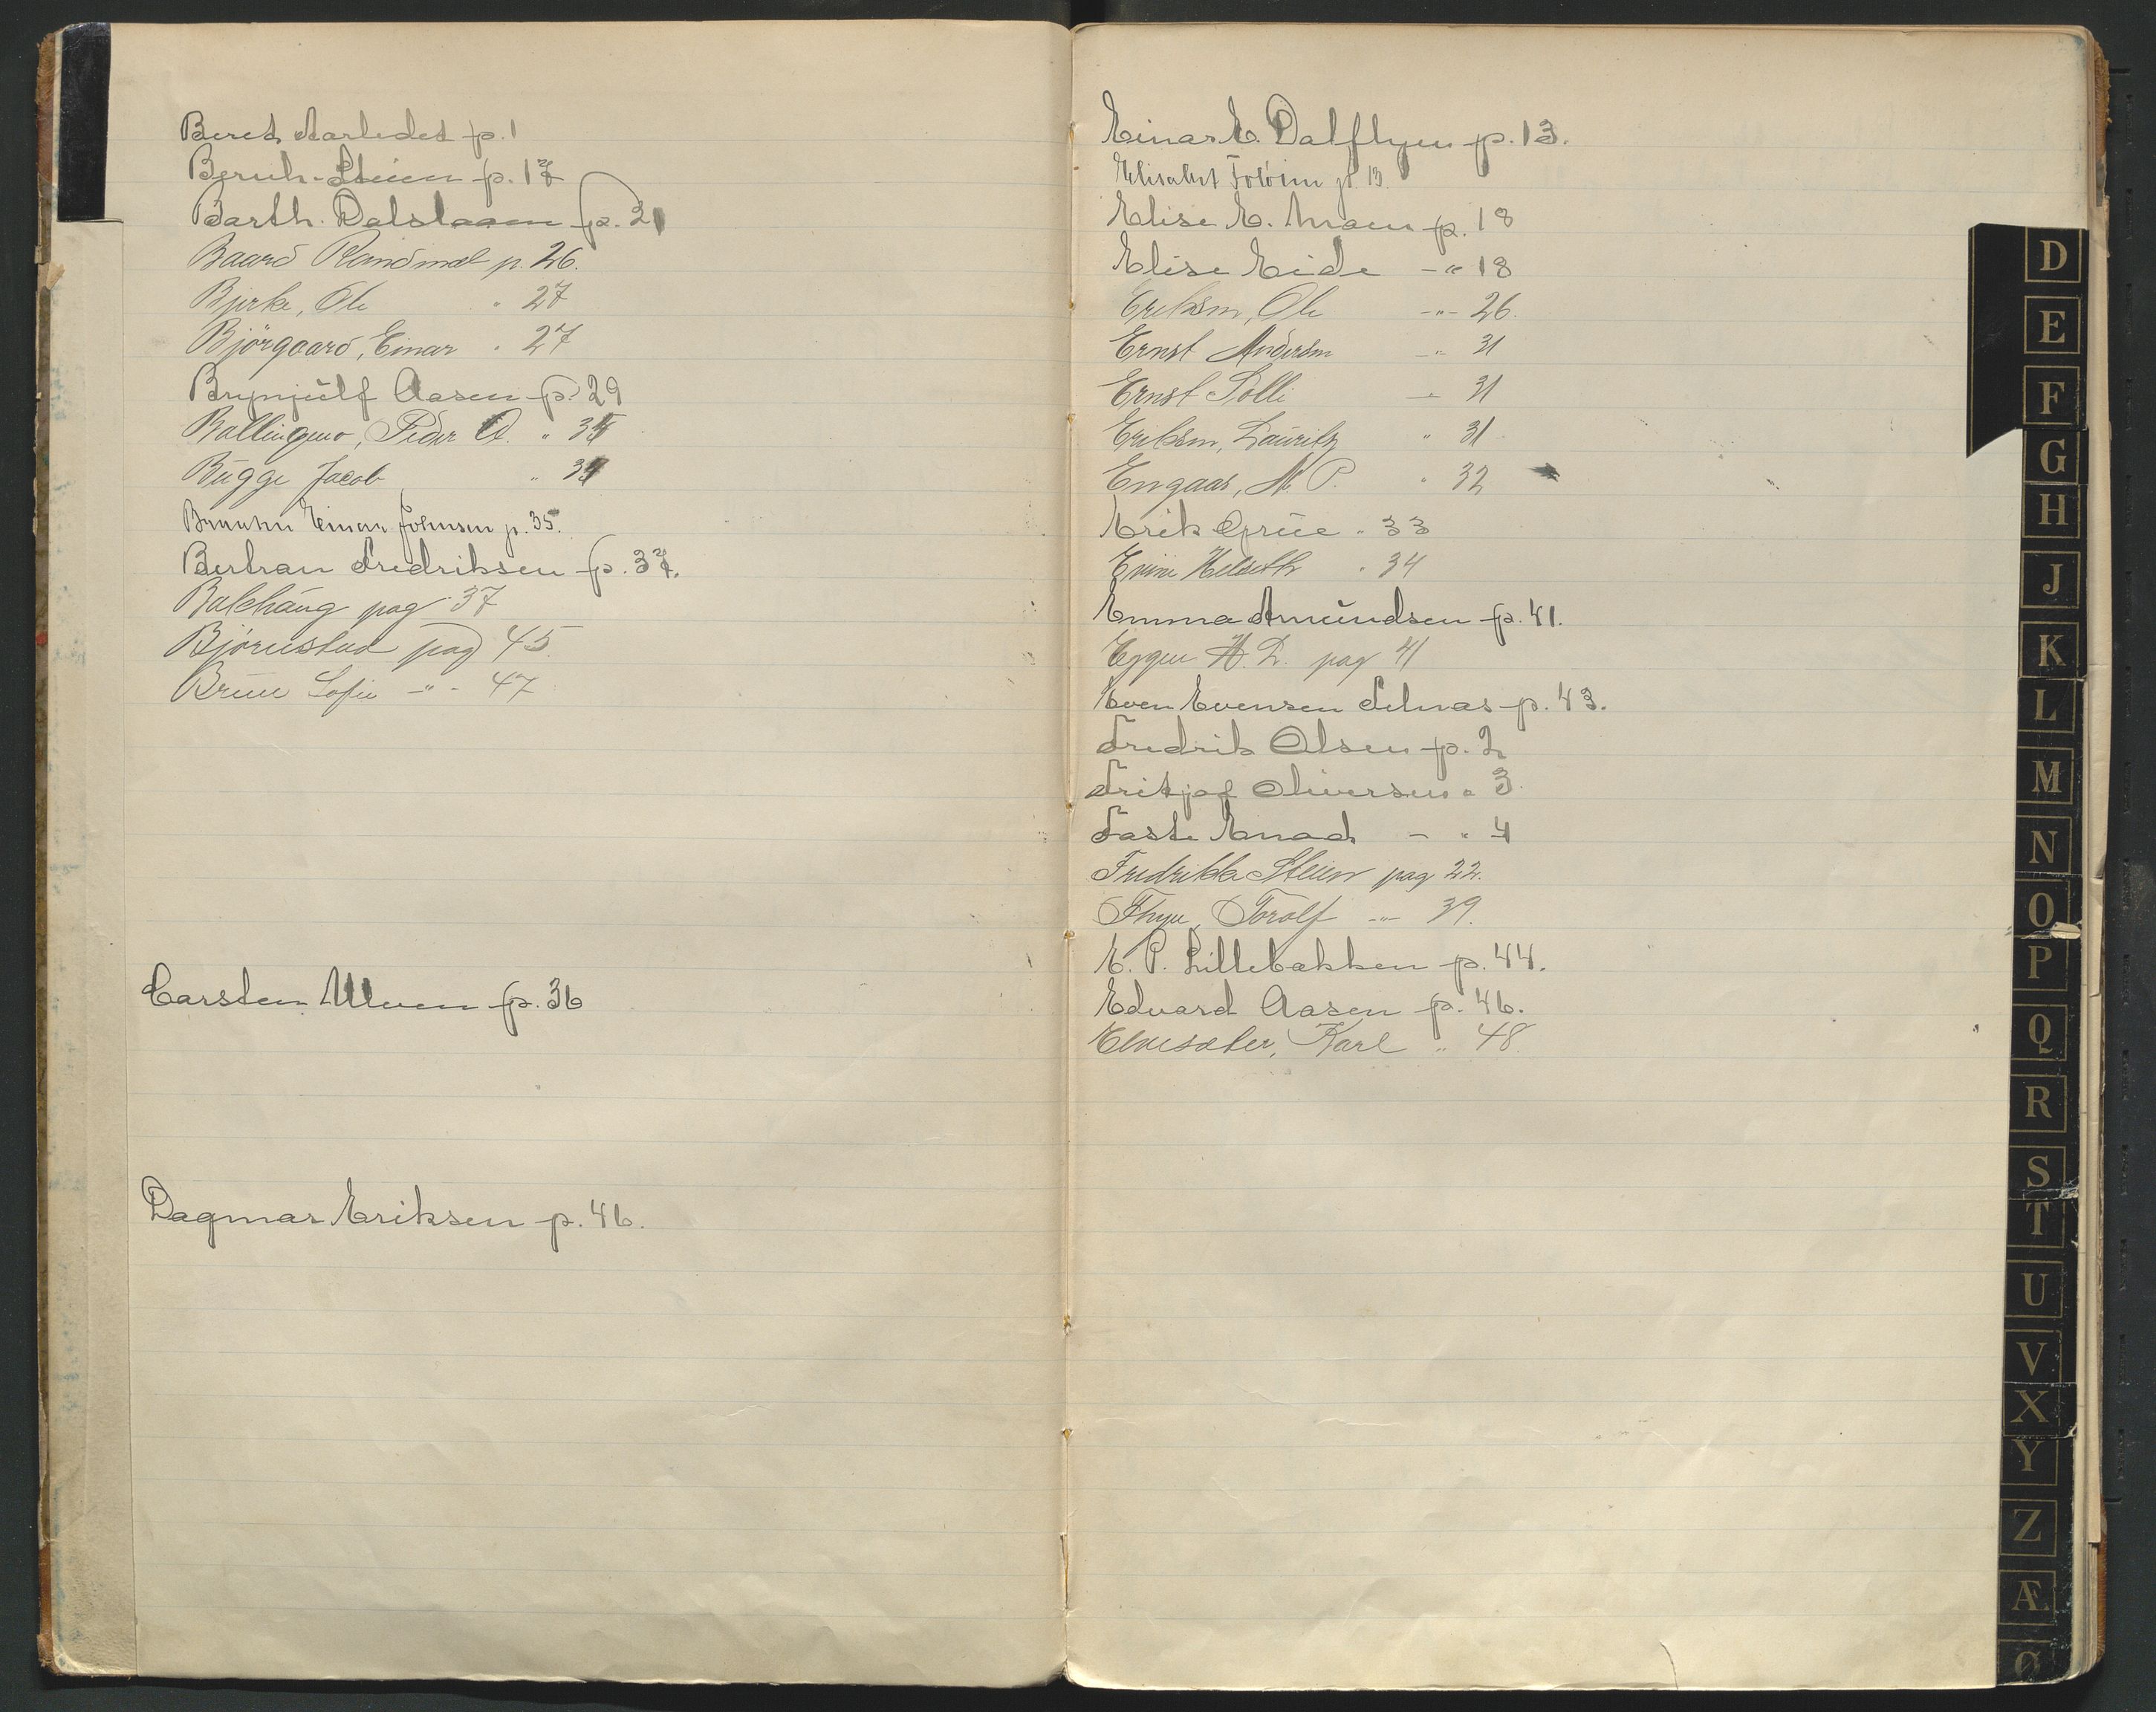 Beret Aarledet p. 1
Bernh. Steien p. 17
Barth. Dalslaaen p. 21
Baard Randmæl p. 26.
Bjerke, Ole " 27
Björgaard, Einar " 27
Brynjulf Aasen p. 29
Ballingmo, Peder O. " 34
Bugge Jacob " 34
Einar Johnsen p. 35.
Bertran Fredriksen p. 37.
Balchaug pag 37
Björnstad pag 45
Bruu Sofie -"- 47
Carsten Ulven p. 36
Dagmar Eriksen p. 46.
Einar E. Dalflyen p. 13.
Elisabet p. 13.
Elise E. Moen p. 18
Elise Eide -" 18
Eriksen, Ole -"- 26.
Ernst Andersen -"- 31
Ernst Solli - 31
Eriksen, Lauritz " 31
Engaas, M. P. " 32
Erik Grue " 33
Helseth " 34
Emma Amundsen p. 41.
Eggen H. L. pag 41
Even Evensen Selnæs p. 43.
Fredrik Olsen p. 2
Fritjof Oliversen " 3.
Faste Enad - " 4
Fredrikke Steien pag 22.
Flyen, Torolf -"- 39.
E. P. Lillebakken p. 44.
Edvard Aasen p. 46.
Elvesæter, Karl " 48.
D
E
F
G
H
J
K
L
M
N
O
P
Q
R
S
T
U
V
X
Y
Z
Æ
Ø